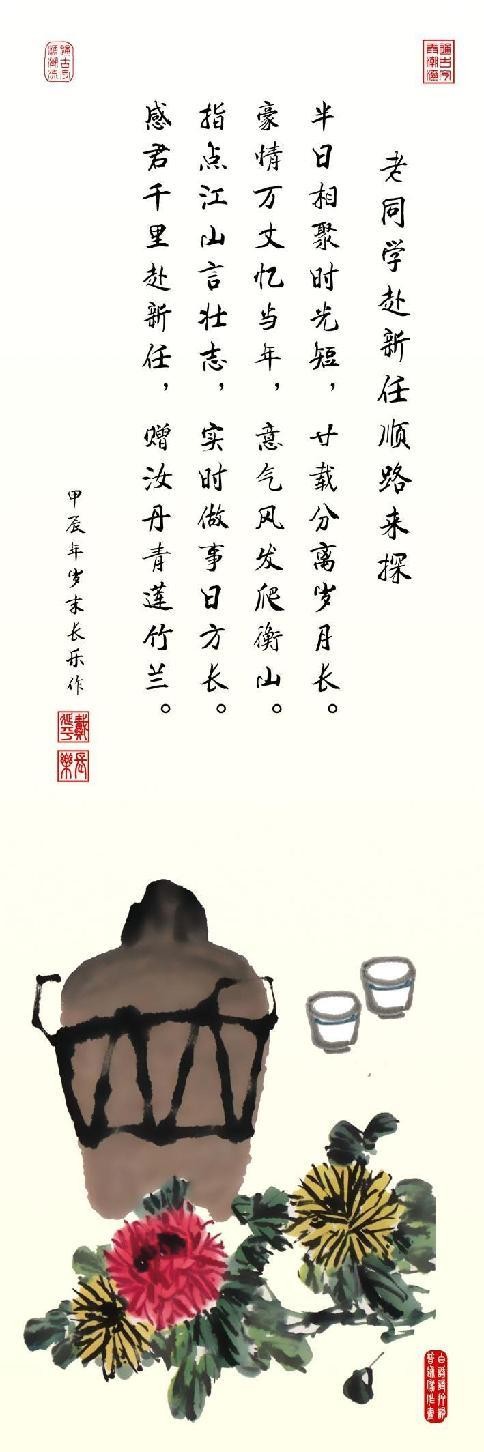 老同学赴新任顺路来探
半日相聚时光短，廿载分离岁月长。
豪情万丈忆当年，意气风发爬衡山。
指点江山言壮志，实时做事日方长。
感君千里赴新任，赠汝丹青莲竹兰。
甲辰年岁末长乐作